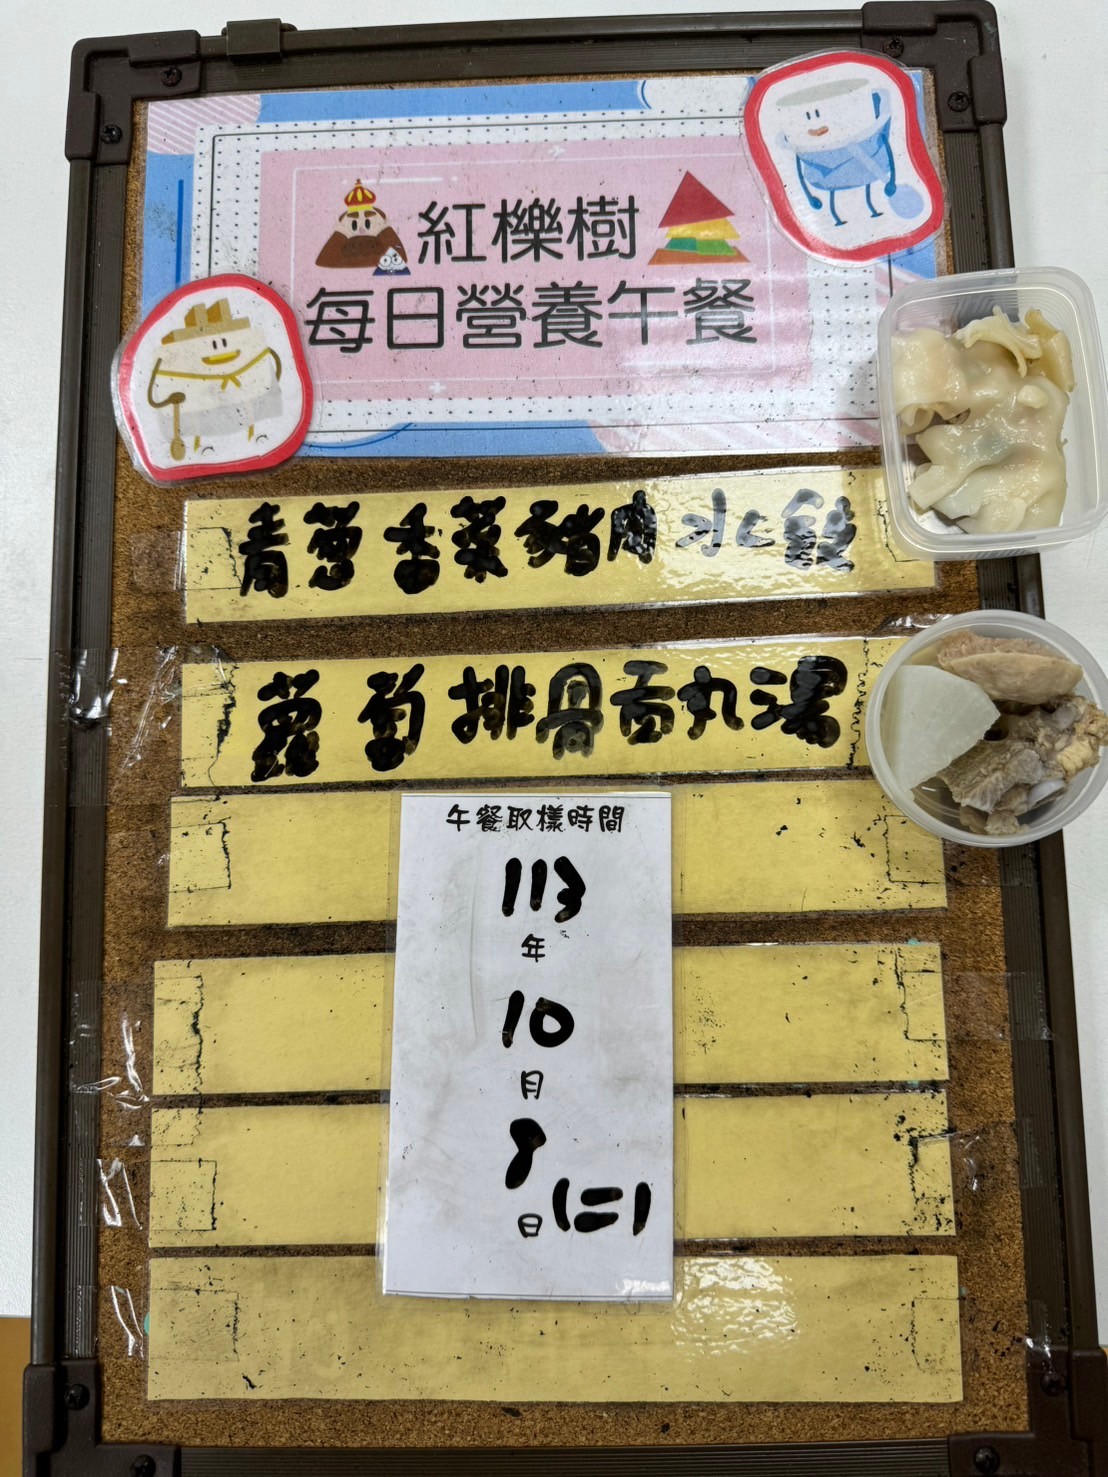 紅櫟樹
每日營養午餐
青蔥香菜豬肉水餃
蘿蔔排骨貢丸湯
午餐取樣時間
113
年
10
月
8
日(二)